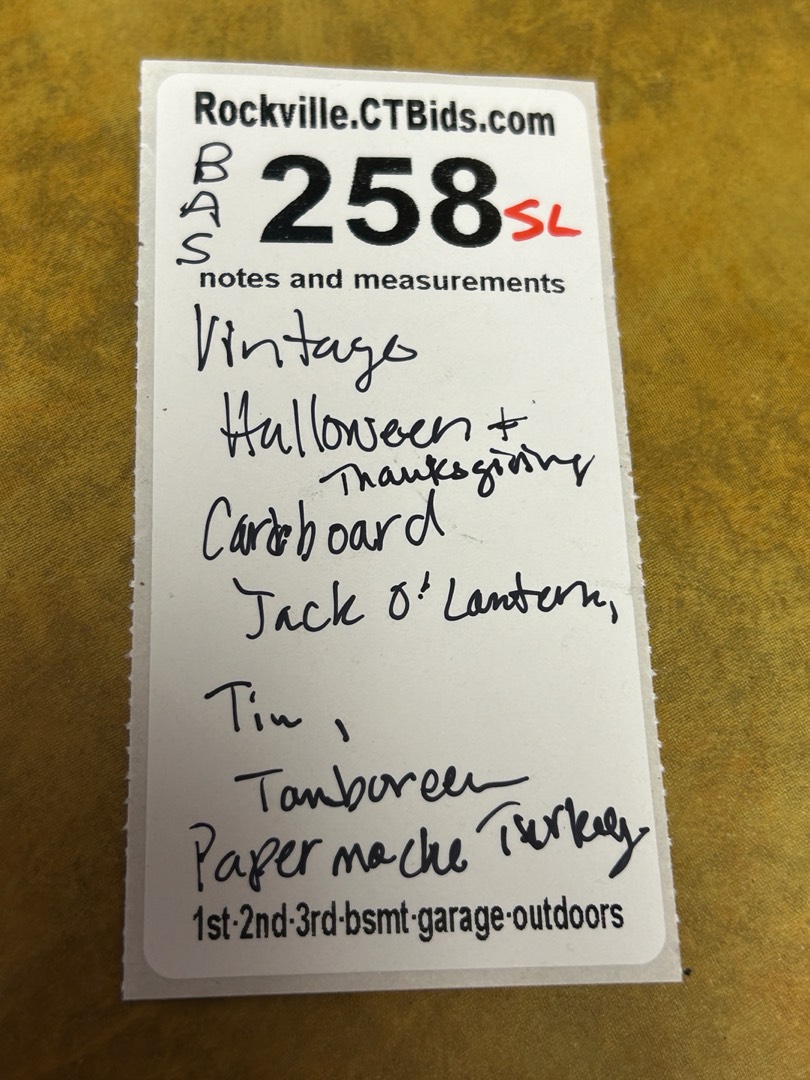 Rockville.CTBids.com
BAS
258 SL
notes and measurements
Vintage
Halloween +
Thanksgiving
Cardboard
Jack O' Lantern,
Tin,
Tamboreen
Paper mache Turkey
1st·2nd·3rd·bsmt·garage·outdoors